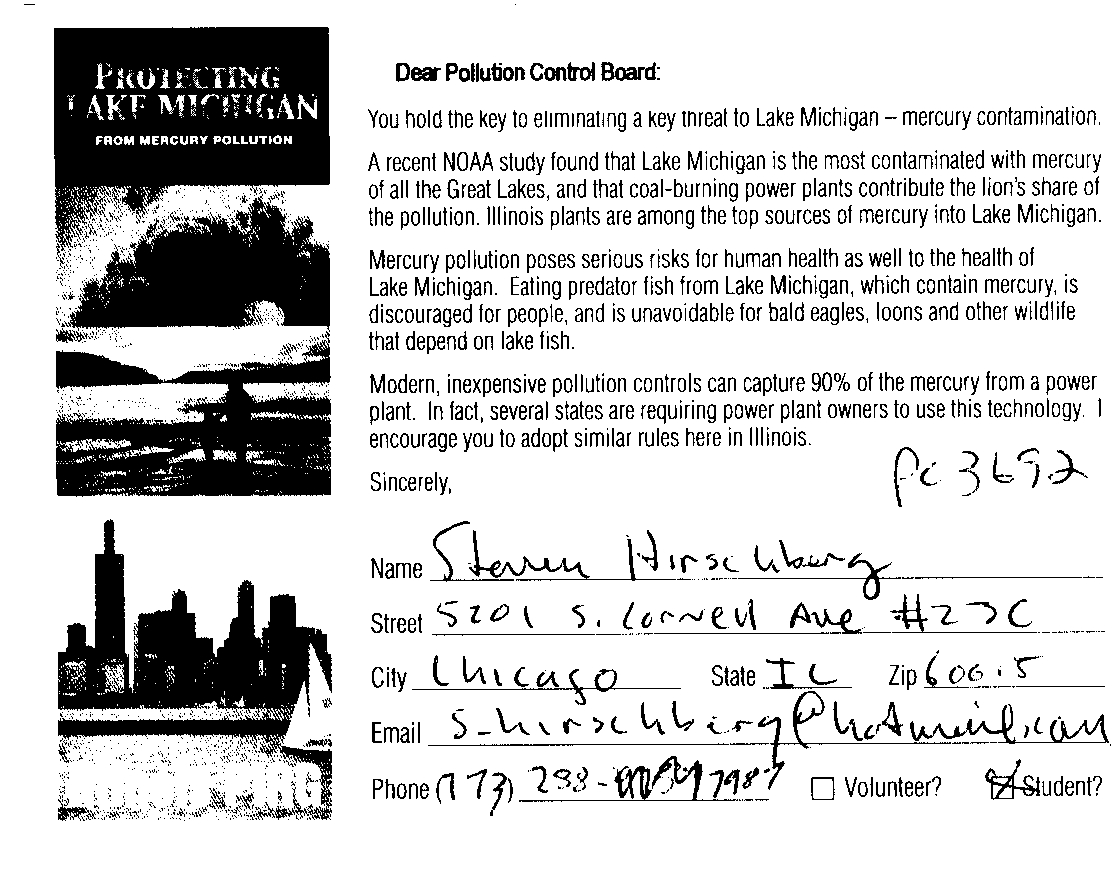 PROTECTING
LAKE MICHIGAN
FROM MERCURY POLLUTION
Dear Pollution Control Board:
You hold the key to eliminating a key threat to Lake Michigan – mercury contamination.
A recent NOAA study found that Lake Michigan is the most contaminated with mercury
of all the Great Lakes, and that coal-burning power plants contribute the lion's share of
the pollution. Illinois plants are among the top sources of mercury into Lake Michigan.
Mercury pollution poses serious risks for human health as well to the health of
Lake Michigan. Eating predator fish from Lake Michigan, which contain mercury, is
discouraged for people, and is unavoidable for bald eagles, loons and other wildlife
that depend on lake fish.
Modern, inexpensive pollution controls can capture 90% of the mercury from a power
plant. In fact, several states are requiring power plant owners to use this technology. I
encourage you to adopt similar rules here in Illinois.
Sincerely,
PC 3692
Name Steven Hirschberg
Street 5201 S. Cornell Ave #27C
City Chicago State IL Zip
Email S-hirschberg@hotmail.com
Phone (773) 288- 7987 Volunteer? Student?
PIRG